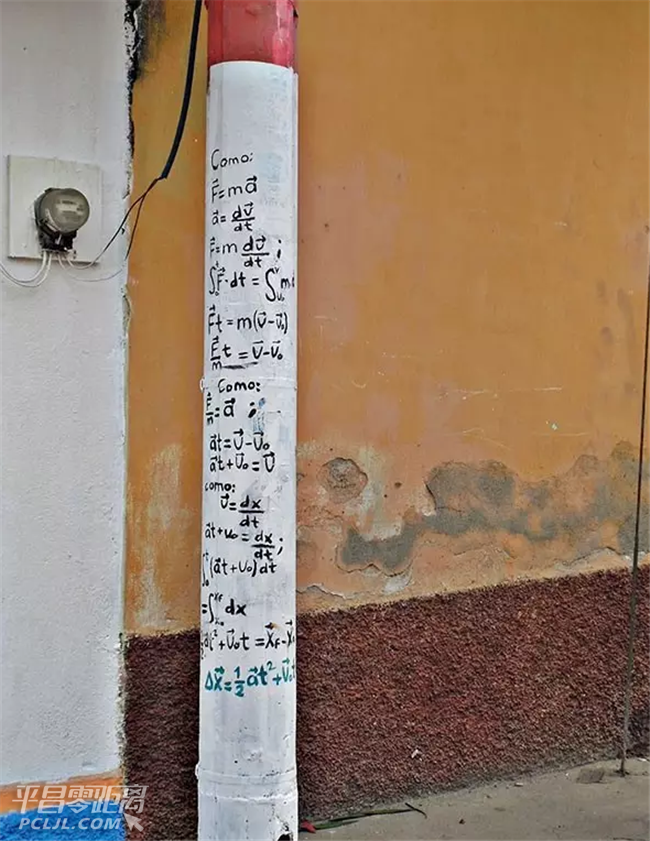 Como:
F⃗=ma⃗
a⃗=dv⃗/dt
F⃗=m dv⃗/dt;
∫₀ᵗF⃗·dt=∫ᵥ₀ᵛm
F⃗t=m(v⃗-v⃗₀)
F⃗/m t=v⃗-v⃗₀
Como:
F⃗/m=a⃗;
a⃗t=v⃗-v⃗₀
a⃗t+v⃗₀=v⃗
como:
v⃗=dx/dt
a⃗t+v₀=dx/dt;
∫₀ᵗ(a⃗t+v₀)dt
=∫dx
a⃗t²+v⃗₀t=x⃗f-x⃗
Δx⃗=½a⃗t²+v⃗₀t
平昌零距离
PCLJL.COM